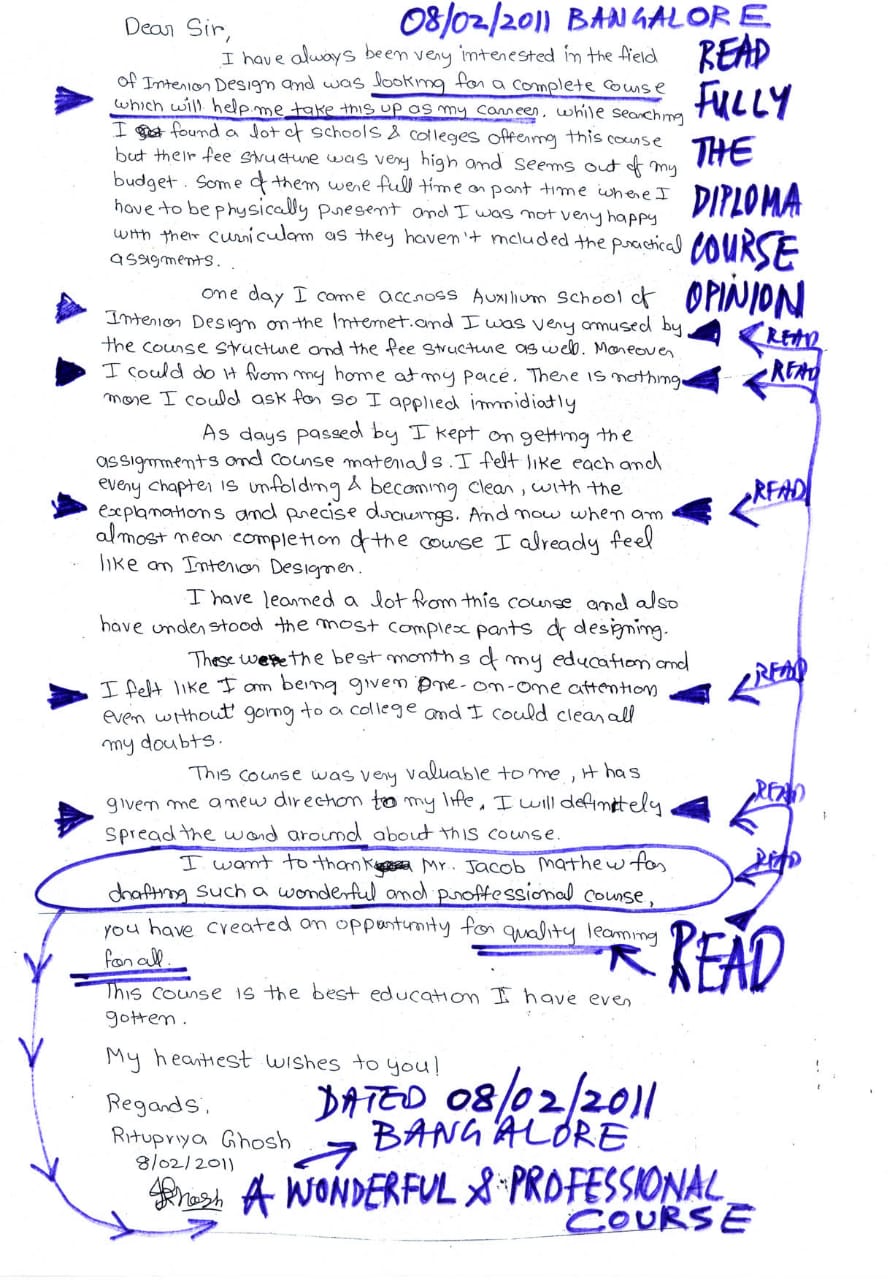 08/02/2011 BANGALORE
Dear Sir,
I have always been very interested in the field
of Interior Design and was looking for a complete course
which will help me take this up as my carreer. while searching
I found a lot of schools & colleges offering this course
but their fee structure was very high and seems out of my
budget. Some of them were full time or part time where I
have to be physically present and I was not very happy
with their curriculam as they haven't included the practical
assigments.
READ
FULLY
THE
DIPLOMA
COURSE
OPINION
one day I came accross Auxilium School of
Interior Design on the Internet. and I was very amused by
the course structure and the fee structure as well. Moreover
I could do it from my home at my pace. There is nothing
more I could ask for so I applied immidiatly
READ
READ
As days passed by I kept on getting the
assignments and course materials. I felt like each and
every chapter is unfolding & becoming clear, with the
explanations and precise drawings. And now when am
almost near completion of the course I already feel
like an Interior Designer.
READ
I have learned a lot from this course and also
have understood the most complex parts of designing.
These were the best months of my education and
I felt like I am being given One-on-one attention
even without going to a college and I could clear all
my doubts.
READ
This course was very valuable to me, it has
given me a new direction to my life. I will definitely
spread the word around about this course.
READ
I want to thank Mr. Jacob Mathew for
drafting such a wonderful and proffessional course,
you have created an oppurtunity for quality learning
for all.
READ
READ
This course is the best education I have ever
gotten.
My heartiest wishes to you!
Regards,
Ritupriya Ghosh
8/02/2011
DATED 08/02/2011
BANGALORE
A WONDERFUL & PROFESSIONAL
COURSE